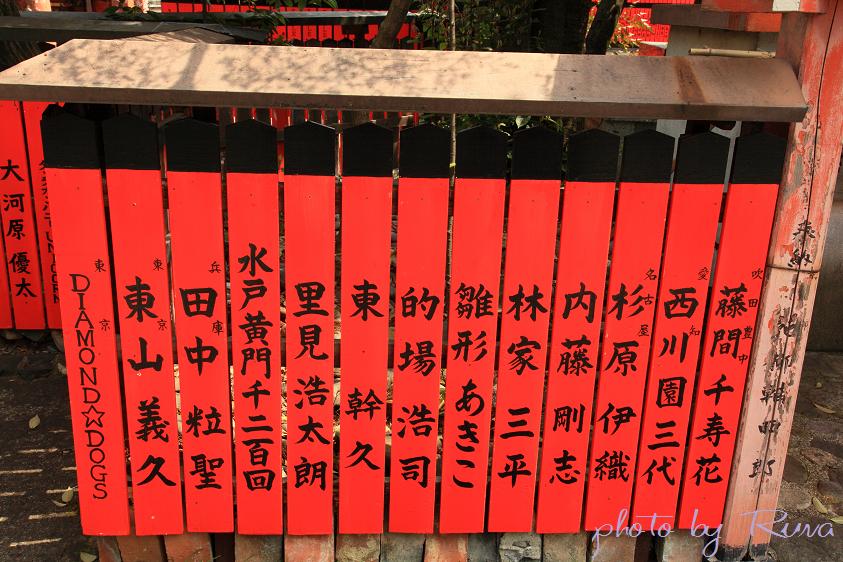 吹田 豊中
藤間 千寿花
愛知
西川園三代
名古屋
杉原 伊織
内藤 剛志
林家 三平
雛形 あきこ
的場 浩司
東 幹久
里見 浩太朗
水戸黄門千二百回
兵庫
田中 粒聖
東京
東山 義久
東京
DIAMOND☆DOGS
大河原 優太
奉納
photo by Ruva